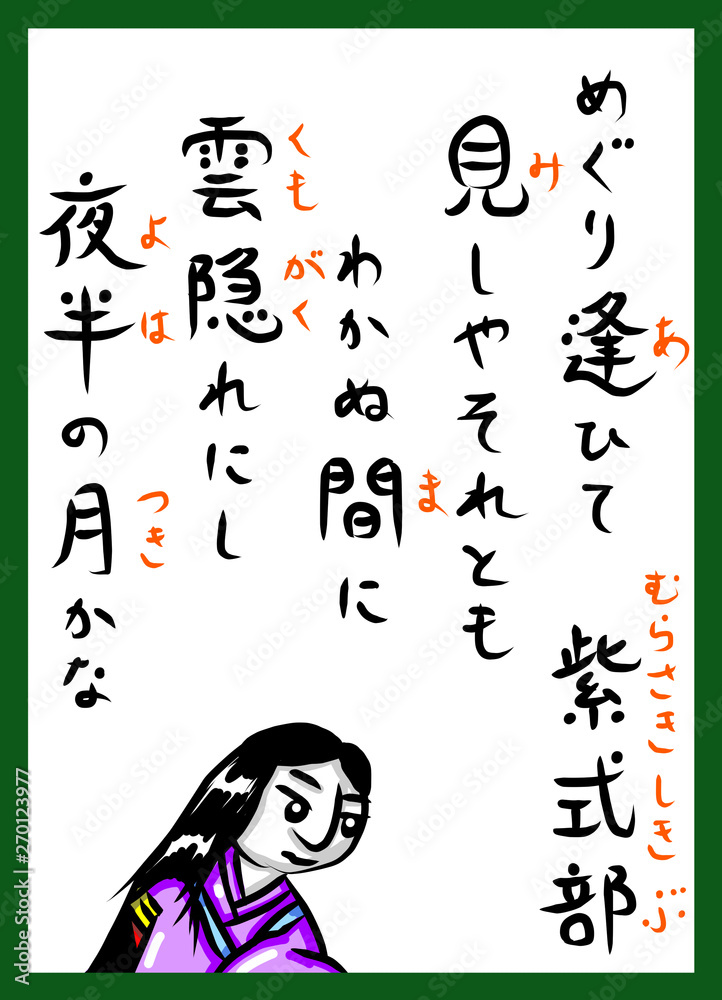 めぐり逢ひて
あ
見しやそれとも
み
わかぬ間に
ま
雲隠れにし
くもがく
夜半の月かな
よはつき
紫式部
むらさきしきぶ
Adobe Stock | #270123977